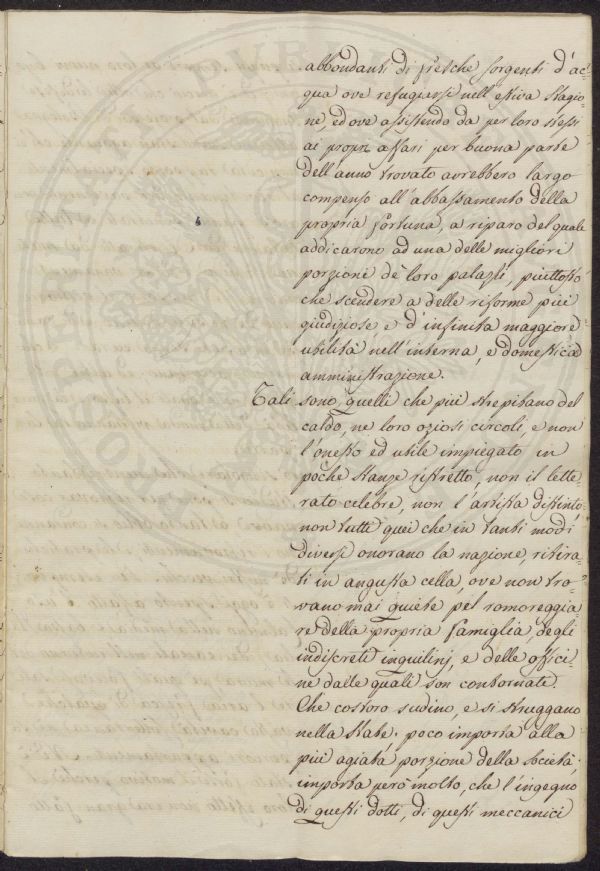 abbondanti di fresche sorgenti d'ac=
qua ove refugiarsi nell'estiva stagio=
ne, ed ove assistendo da per loro stessi
ai propri affari per buona parte
dell'anno trovato avrebbero largo
compenso all'abbassamento della
propria fortuna, a riparo del quale
addicarono ad una delle migliori
porzioni de' loro palazzi, piuttosto
che scendere a delle riforme più
giudiziose e d'infinita maggiore
utilità nell'interna, e domestica
amministrazione.
Tali sono quelli che più strepitano del
caldo, ne loro oziosi circoli, e non
l'onesto ed utile impiegato in
poche stanze ristretto, non il lette=
rato celebre, non l'artista distinto,
non tutti quei che in tanti modi
diversi onorano la nazione, ritira=
ti in angusta cella, ove non tro=
vano mai quiete pel romoreggia
re della propria famiglia, degli
indiscreti inquilini, e delle offici=
ne dalle quali son contornate.
Che costoro sudino, e si struggano
nella state, poco importa alla
più agiata porzione della società;
importa però molto, che l'ingegno
di questi dotti, di questi meccanici